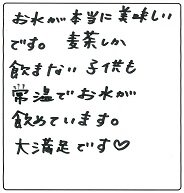 お水が本当に美味しい
です。 麦茶しか
飲まない子供も
常温でお水が
飲めています。
大満足です♡